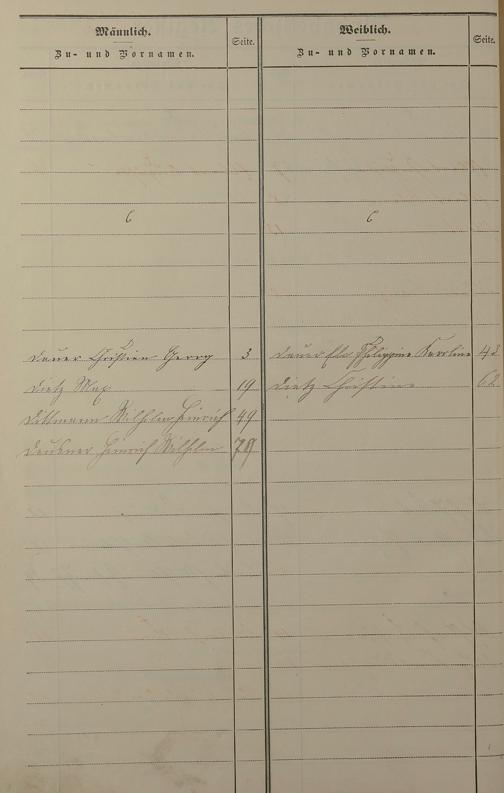 Männlich.
Zu- und Vornamen.
Seite.
C
Dauer Christian Georg 3
Dietz Max 19
Dittmann Wilhelm Heinrich 49
Heinrich Wilhelm 78
Weiblich.
Zu- und Vornamen.
Seite.
C
Dauer Philippine Karoline 43
Dietz Christine 62